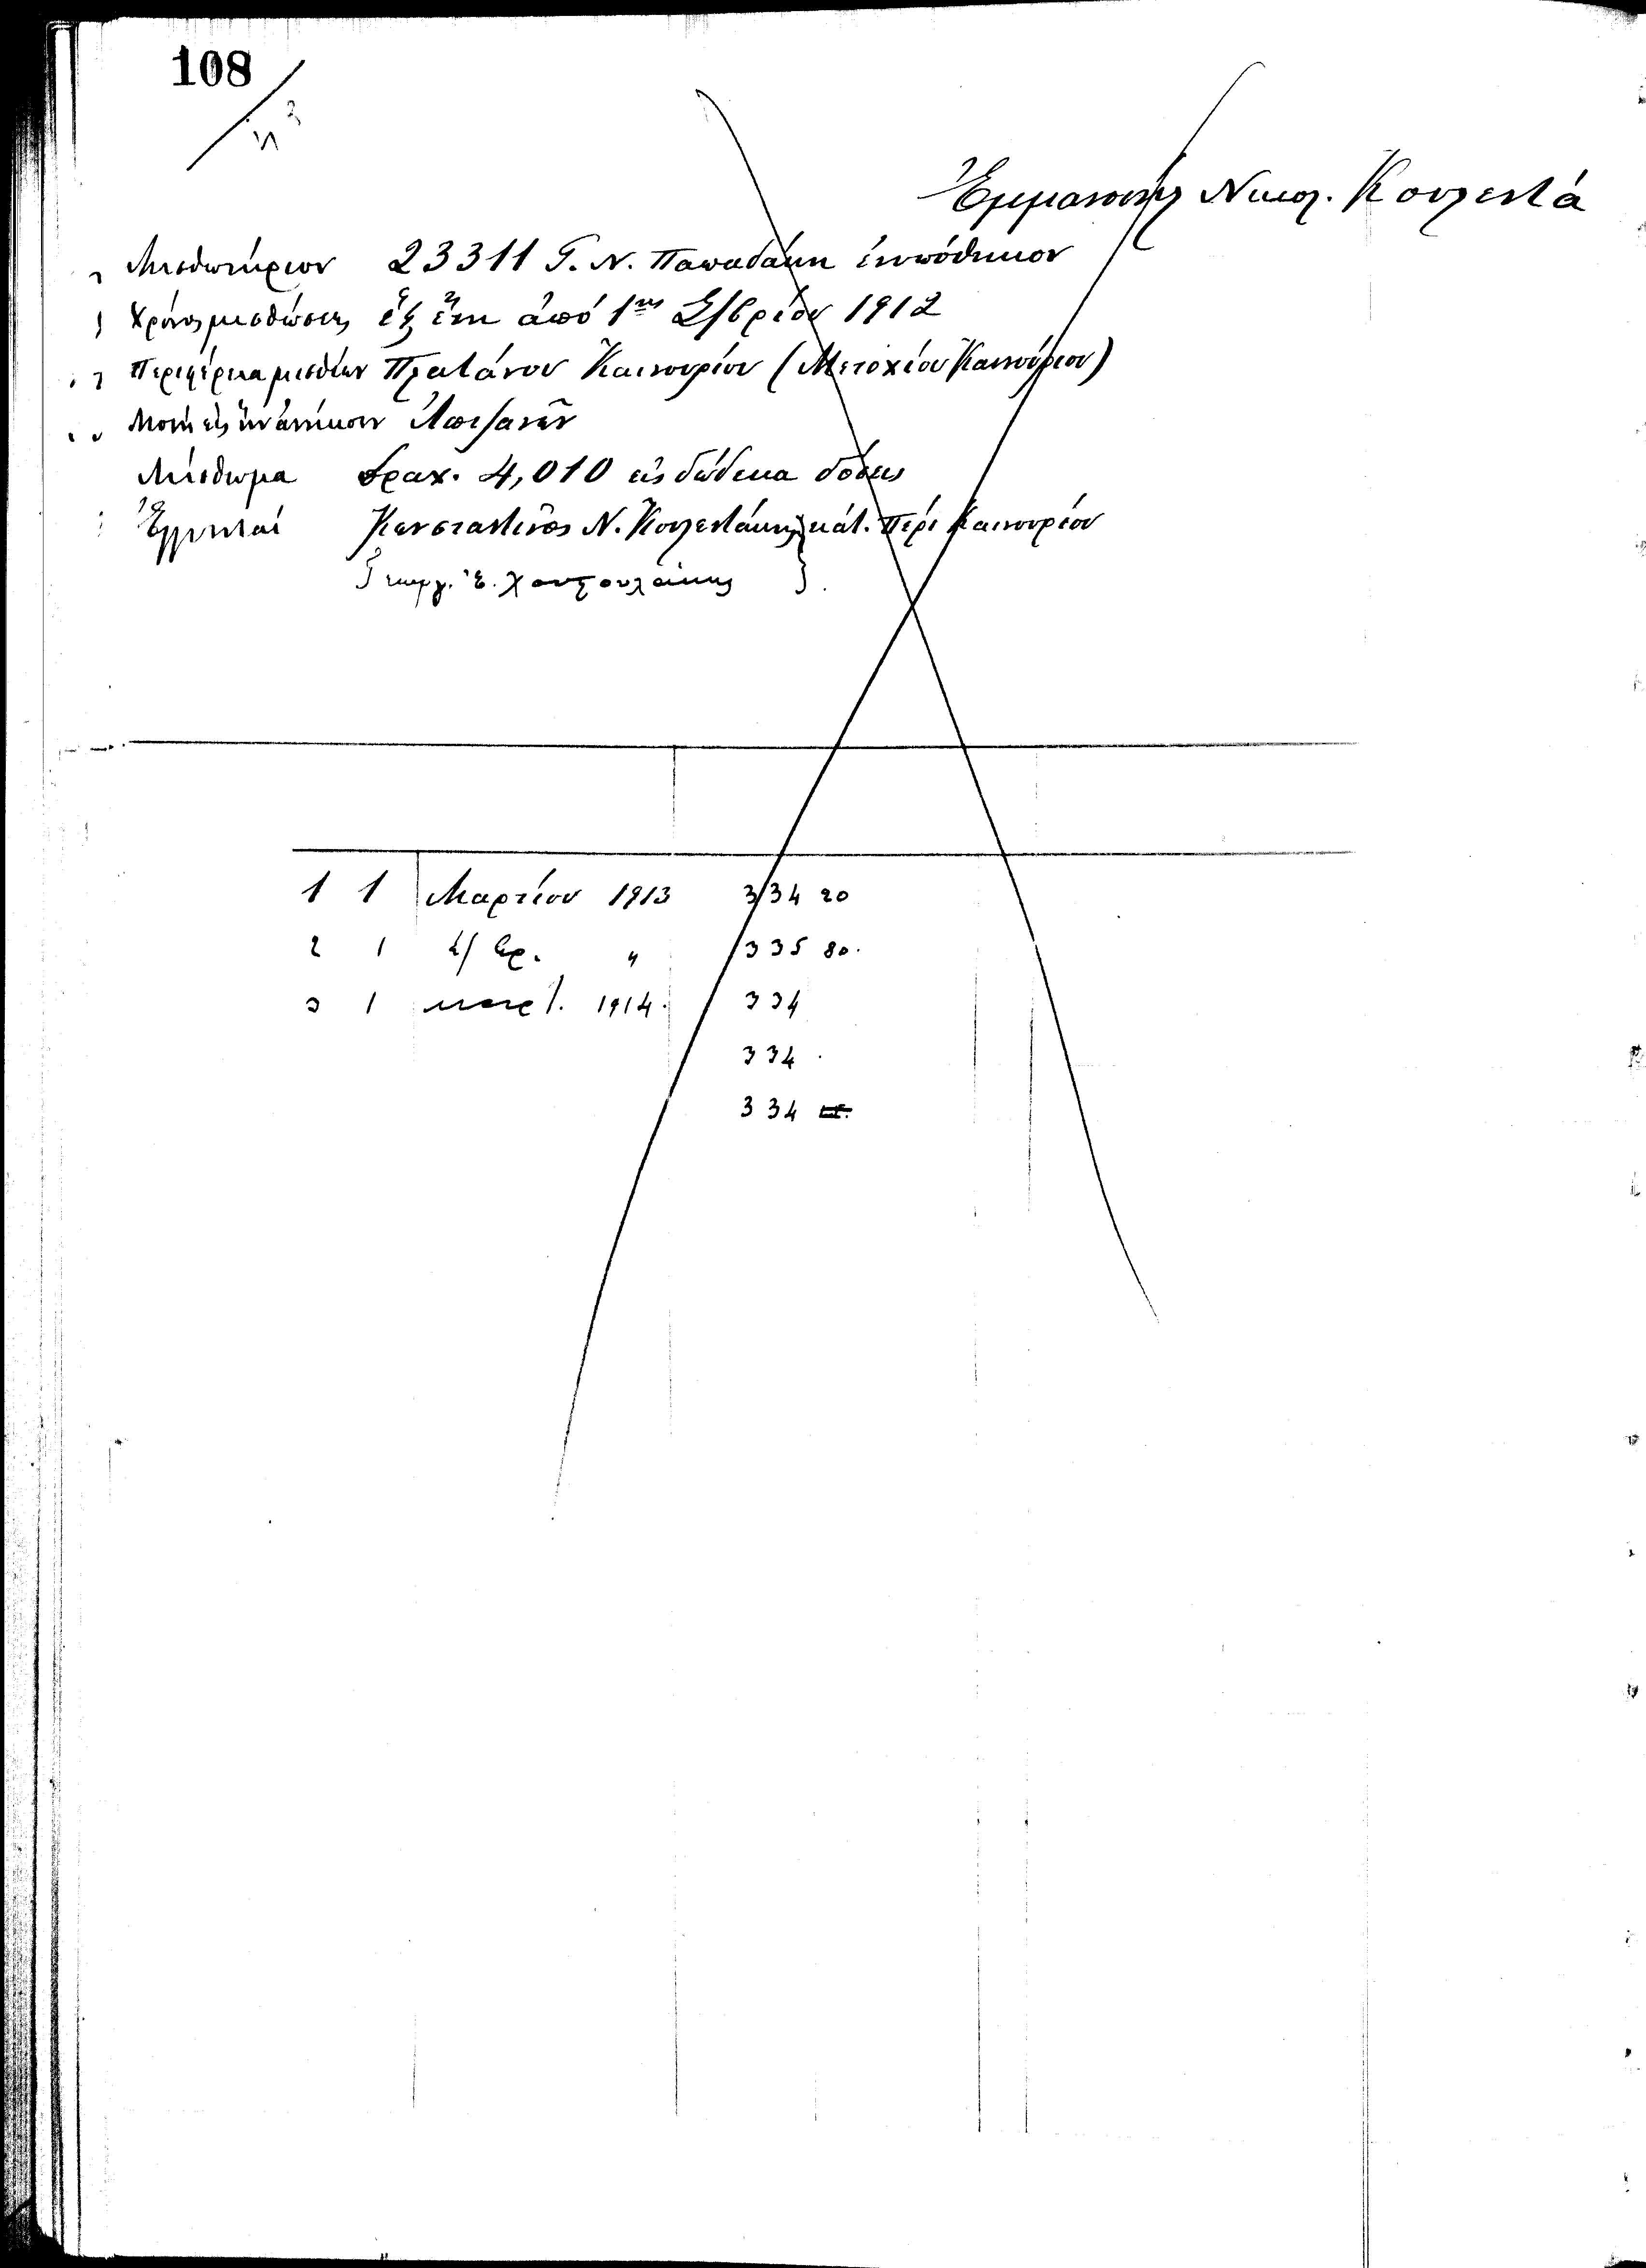 108
Ἐμμανουὴλ Νικολ. Κουλεντά
Μισθωτήριον 23311 Γ. Ν. Παπαδάκη ἐνυπόθηκον
Χρόνος μισθώσεως ἕξ ἔτη ἀπό 1ης Σ/βρίου 1912
Περιφέρεια μισθίων Πλατάνου Καινουρίου (Μετοχίου Καινούριου)
Μονή εἰς ἥν ἀνήκουν Ἀπεζανῶν
Μίσθωμα δραχ. 4,010 εἰς δώδεκα δόσεις
Ἐγγυηταί Κωνσταντῖνος Ν. Κουλεντάκης } κάτ. Περι Καινουρίου
Γεωργ. Ἐ. Χουζουλάκης }
1 1 Μαρτίου 1913 334 20
2 1 Σ/βρ. " 335 80
3 1 Μαρτ. 1914. 334
334
334